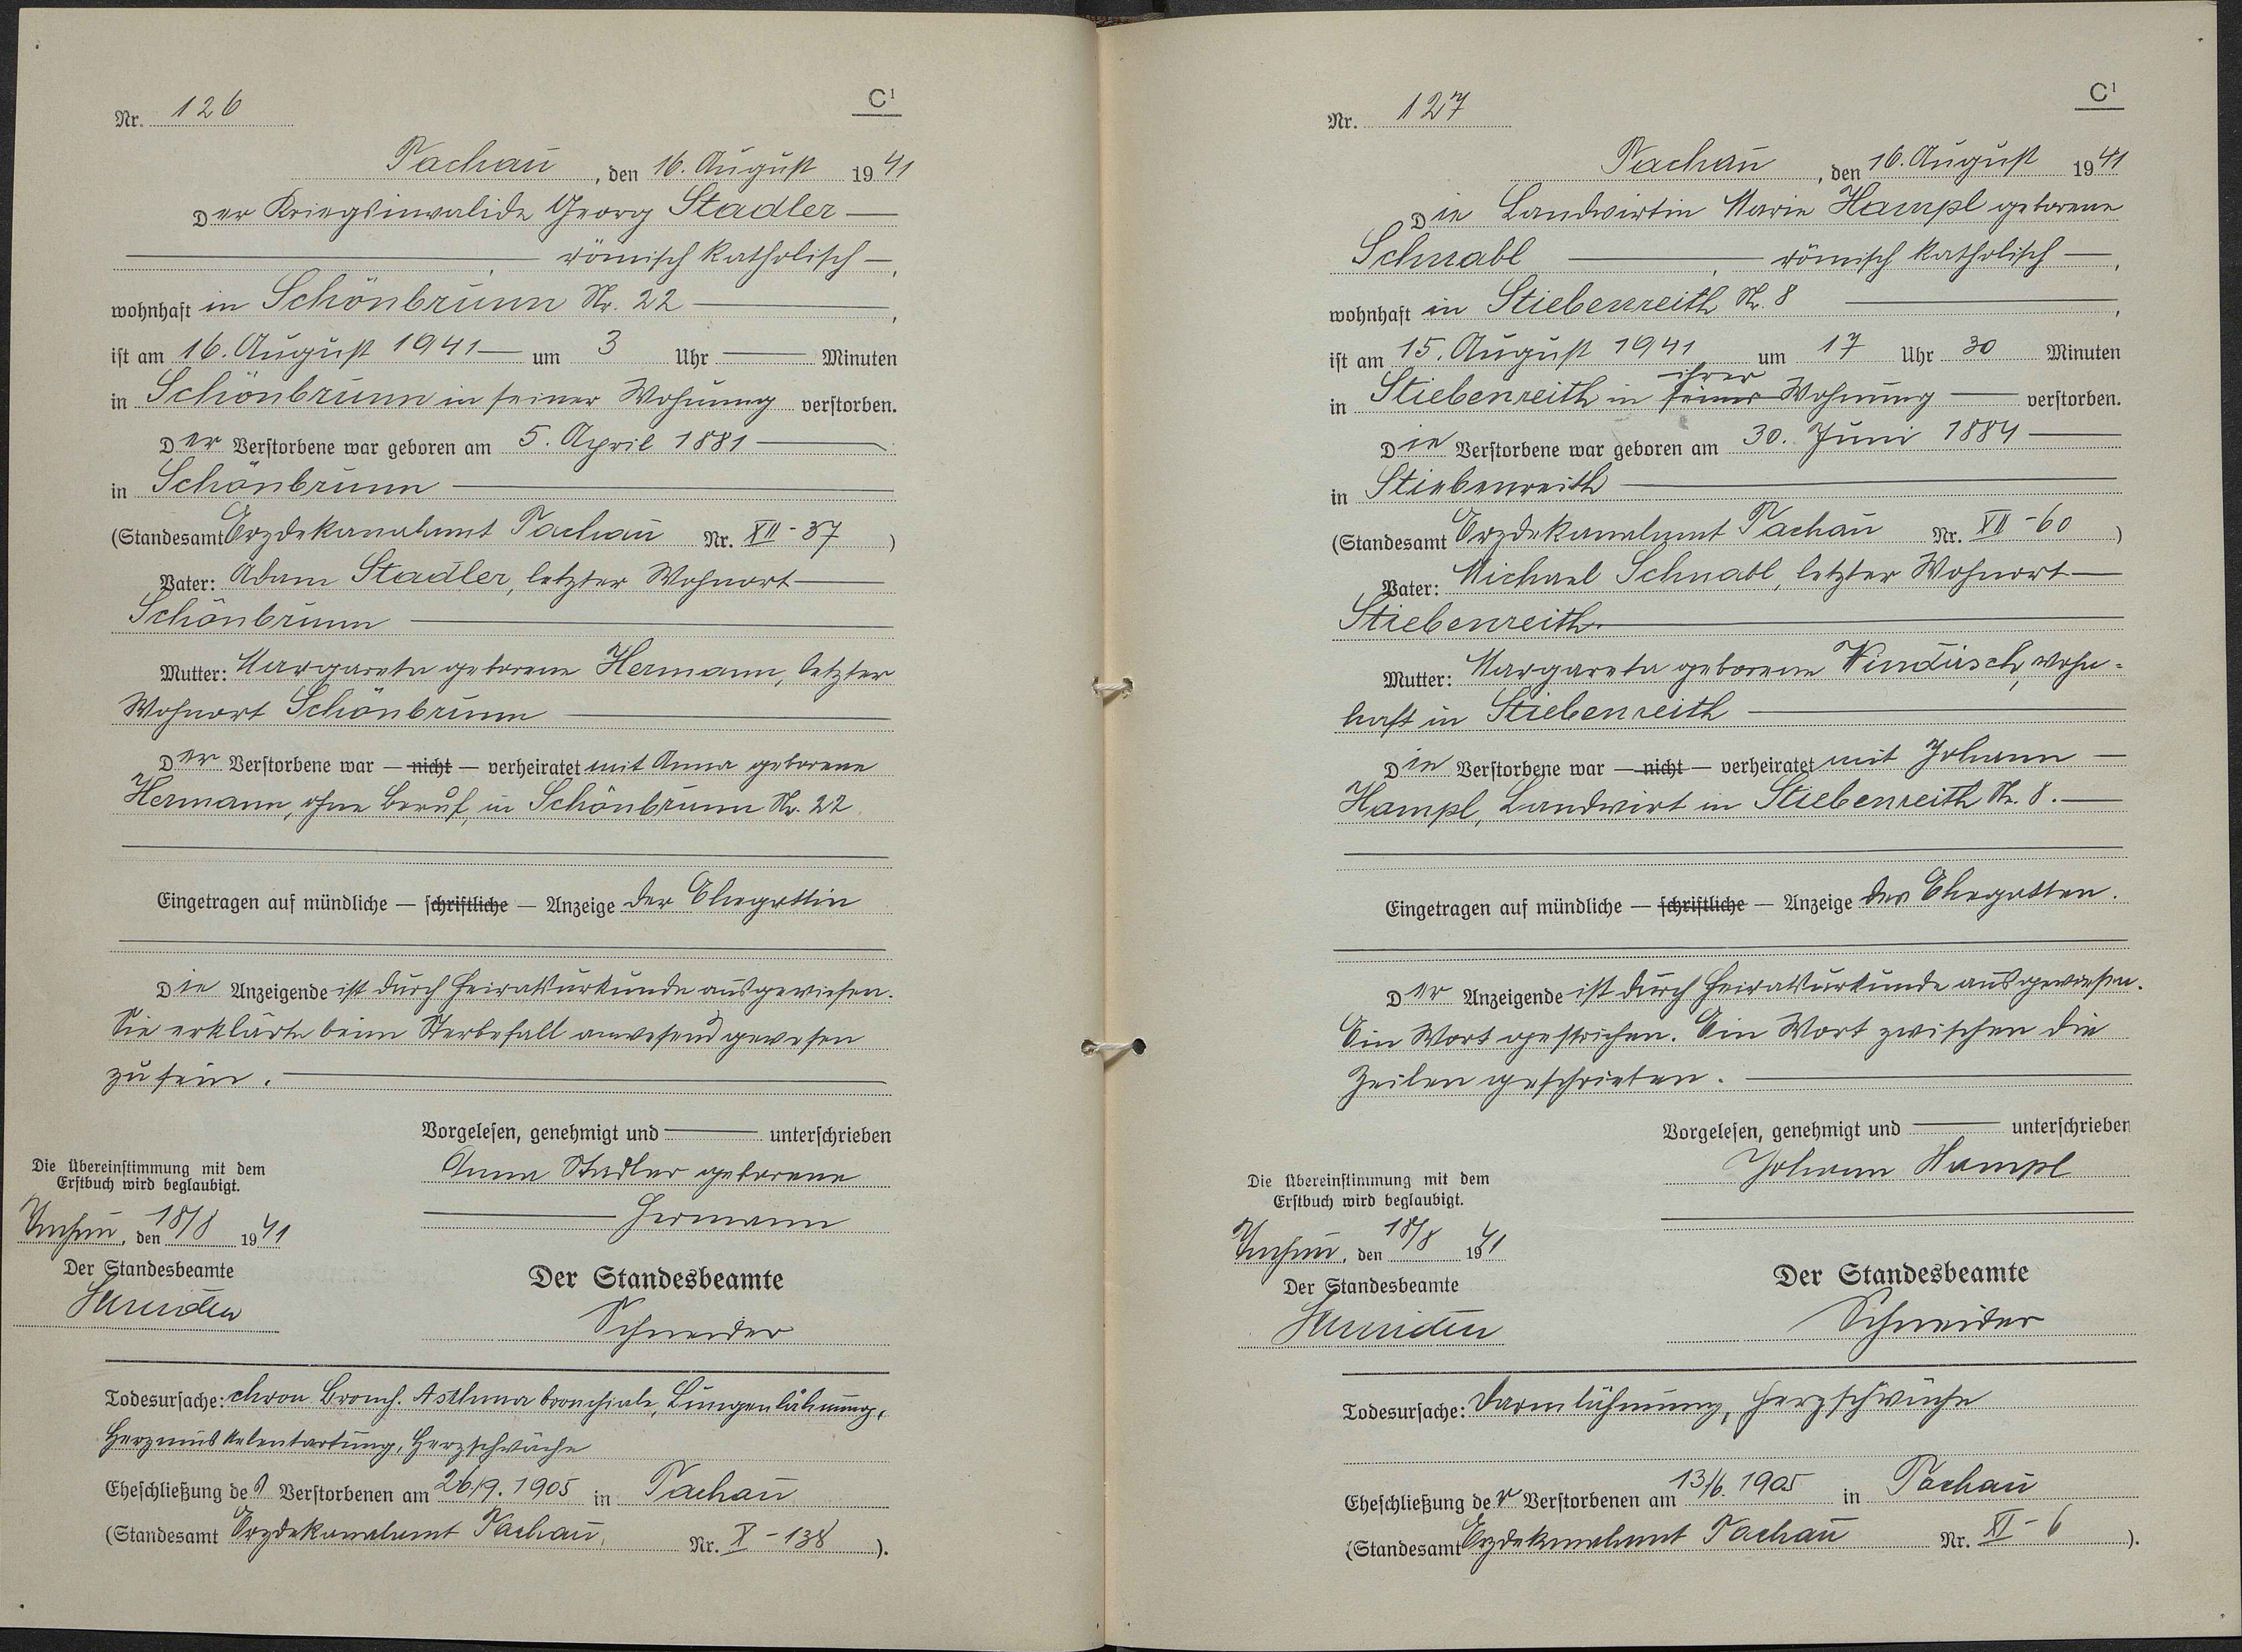 C¹
Nr. 126
Tachau, den 16. August 1941
Der Kriegsinvalide Georg Stadler —
—, — römisch katholisch —,
wohnhaft in Schönbrunn Nr. 22 —,
ist am 16. August 1941 — um 3 Uhr — Minuten
in Schönbrunn in seiner Wohnung verstorben.
Der Verstorbene war geboren am 5. April 1881 —
in Schönbrunn —
(Standesamt Erzdekanalamt Tachau Nr. XII - 37)
Vater: Adam Stadler, letzter Wohnort —
Schönbrunn —
Mutter: Margareta geborene Hermann, letzter
Wohnort Schönbrunn —
Der Verstorbene war — nicht — verheiratet mit Anna geborene
Hermann, ohne Beruf, in Schönbrunn Nr. 22
Eingetragen auf mündliche — schriftliche — Anzeige der Ehegattin
Die Anzeigende ist durch Heiratsurkunde ausgewiesen.
Sie erklärte beim Sterbefall anwesend gewesen
zu sein. —
Vorgelesen, genehmigt und — unterschrieben
Anna Stadler geborene
— Hermann
Die Übereinstimmung mit dem
Erstbuch wird beglaubigt.
Tachau, den 18/8 1941
Der Standesbeamte
Schneider
Der Standesbeamte
Schneider
Todesursache: chron. Bronch. Asthma bronchiale, Lungenlähmung,
Herzmuskelentartung, Herzschwäche
Eheschließung des Verstorbenen am 26/9. 1905 in Tachau
(Standesamt Erzdekanalamt Tachau, Nr. X - 138).
C¹
Nr. 127
Tachau, den 16. August 1941
Die Landwirtin Marie Hampl geborene
Schnabl —, — römisch katholisch —,
wohnhaft in Stiebenreith Nr. 8 —,
ist am 15. August 1941 um 17 Uhr 30 Minuten
ihrer
in Stiebenreith in seiner Wohnung — verstorben.
Die Verstorbene war geboren am 30. Juni 1884 —
in Stiebenreith —
(Standesamt Erzdekanalamt Tachau Nr. XII - 60)
Vater: Michael Schnabl, letzter Wohnort —
Stiebenreith. —
Mutter: Margareta geborene Windisch, wohn-
haft in Stiebenreith —
Die Verstorbene war — nicht — verheiratet mit Johann —
Hampl, Landwirt in Stiebenreith Nr. 8. —
Eingetragen auf mündliche — schriftliche — Anzeige des Ehegatten.
Der Anzeigende ist durch Heiratsurkunde ausgewiesen.
Ein Wort gestrichen. Ein Wort zwischen die
Zeilen geschrieben. —
Vorgelesen, genehmigt und — unterschrieben
Johann Hampl
Die Übereinstimmung mit dem
Erstbuch wird beglaubigt.
Tachau, den 18/8 1941
Der Standesbeamte
Schneider
Der Standesbeamte
Schneider
Todesursache: Darmlähmung, Herzschwäche
Eheschließung der Verstorbenen am 13/6. 1905 in Tachau
(Standesamt Erzdekanalamt Tachau Nr. XI - 6).